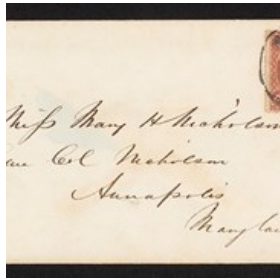 Miss Mary H Nicholson
Care Col Nicholson
Annapolis
Maryland